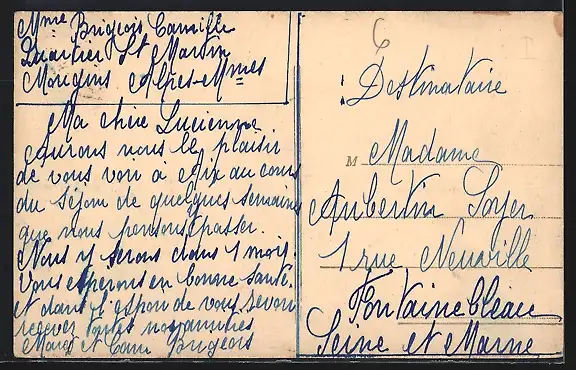 Mme Brigeois Camille
Quartier St Martin
Mougins Alpes-Mmes
Ma chère Lucienne
aurons nous le plaisir
de vous voir à Aix au cours
du séjour de quelques semaines
que nous pensons passer.
Nous y serons dans 1 mois.
Vous espérons en bonne santé.
et dans l'espoir de vous revoir
recevez toutes nos amitiés
Marg et Cam Brigeois
Destinataire
M Madame
Aubertin Soyer
1 rue Neuville
Fontainebleau
Seine et Marne